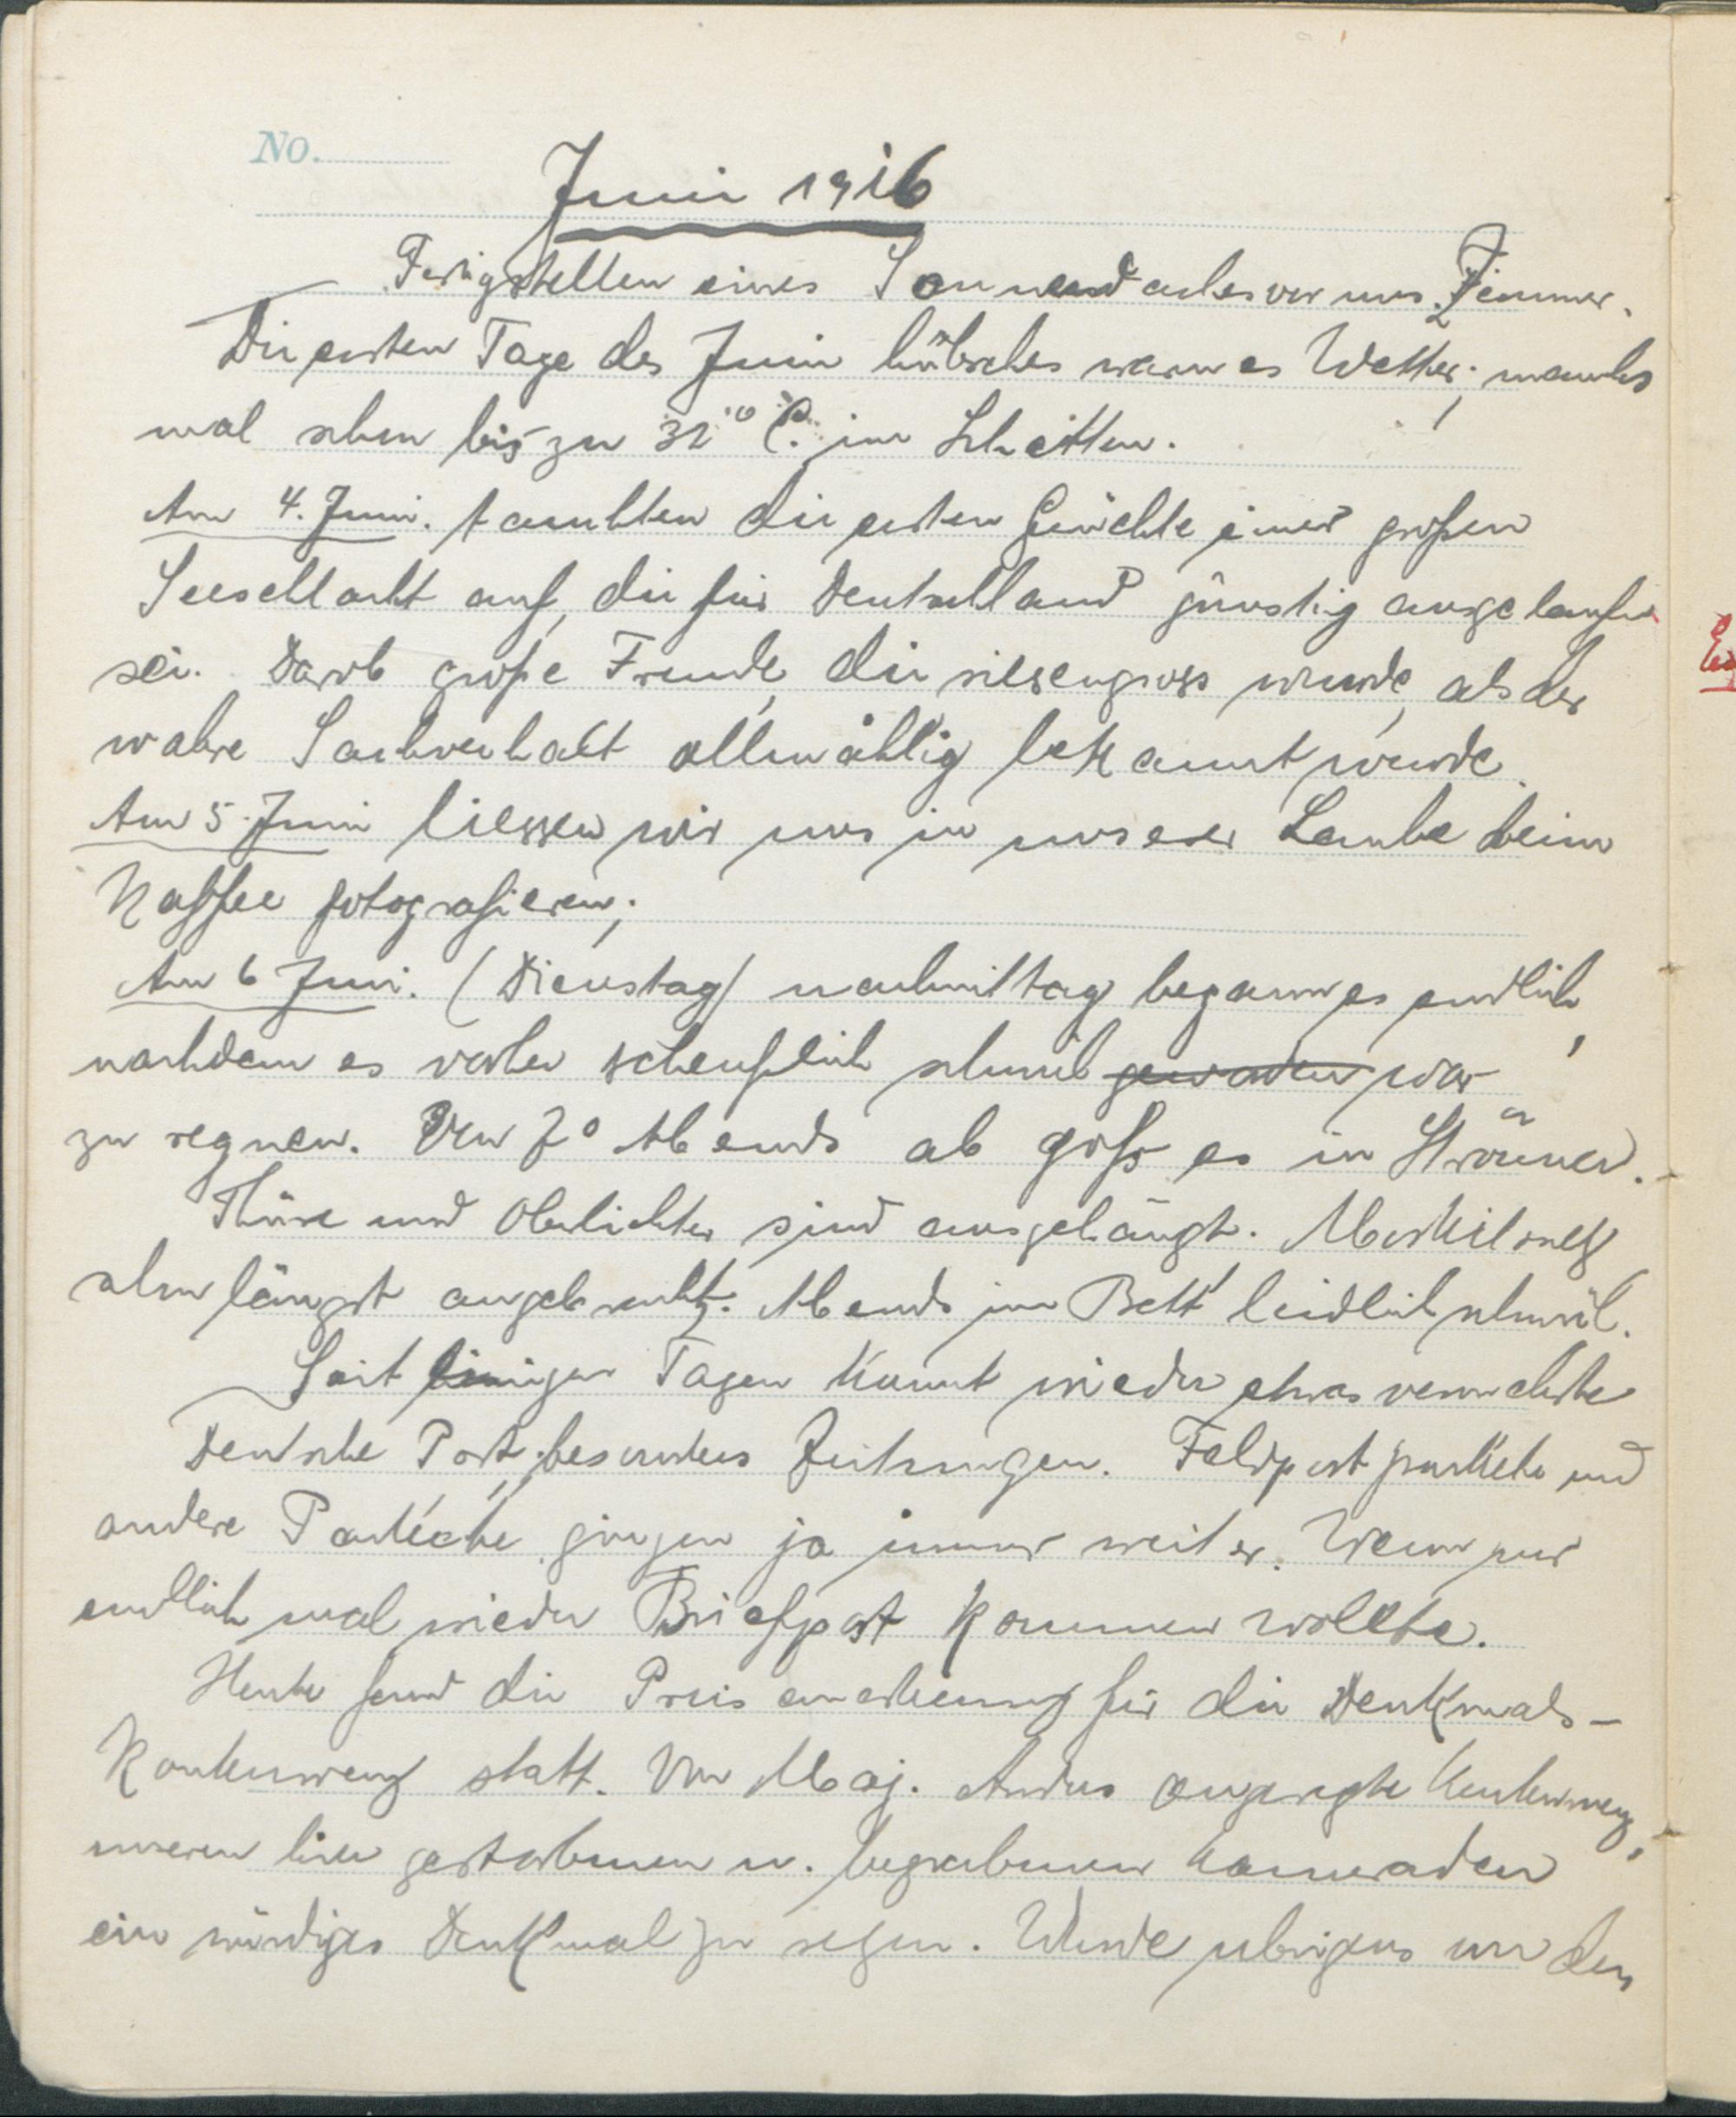 No.
Juni 1916
Fertigstellen eines Sonnendaches vor uns. Zimmer.
Die ersten Tage des Juni hübsches warmes Wetter; manches
mal schon bis zu 32° C. im Schatten.
Am 4. Juni. tauchten die ersten Gerüchte einer großen
Seeschlacht auf, die für Deutschland günstig ausgelaufen
sei. Darob große Freude, die riesengross wurde, als der
wahre Sachverhalt allmählig bekannt wurde.
Am 5. Juni liessen wir uns in unserer Laube beim
Kaffee fotografieren;
Am 6 Juni. (Dienstag) nachmittag begann es endlich,
nachdem es vorher scheußlich schwül geworden war
zu regnen. Von 7° Abends ab goß es in Strömen.
Thüre und Oberlichter sind ausgehängt. Moskitonetz
schon längst angebracht. Abends im Bett leidlich schwül.
Seit einigen Tagen kommt wieder etwas vermehrte
Deutsche Post, besonders Zeitungen. Feldpostpackete und
andere Packete gingen ja immer weiter. Wenn nur
endlich mal wieder Briefpost kommen wollte.
Heute fand die Preis anerkennung für die Denkmals-
Konkurrenz statt. Von Maj. Anders angeregte Konkurrenz,
unseren hier gestorbenen u. begrabenen Kameraden
ein würdiges Denkmal zu setzen. Wurde übrigens von den